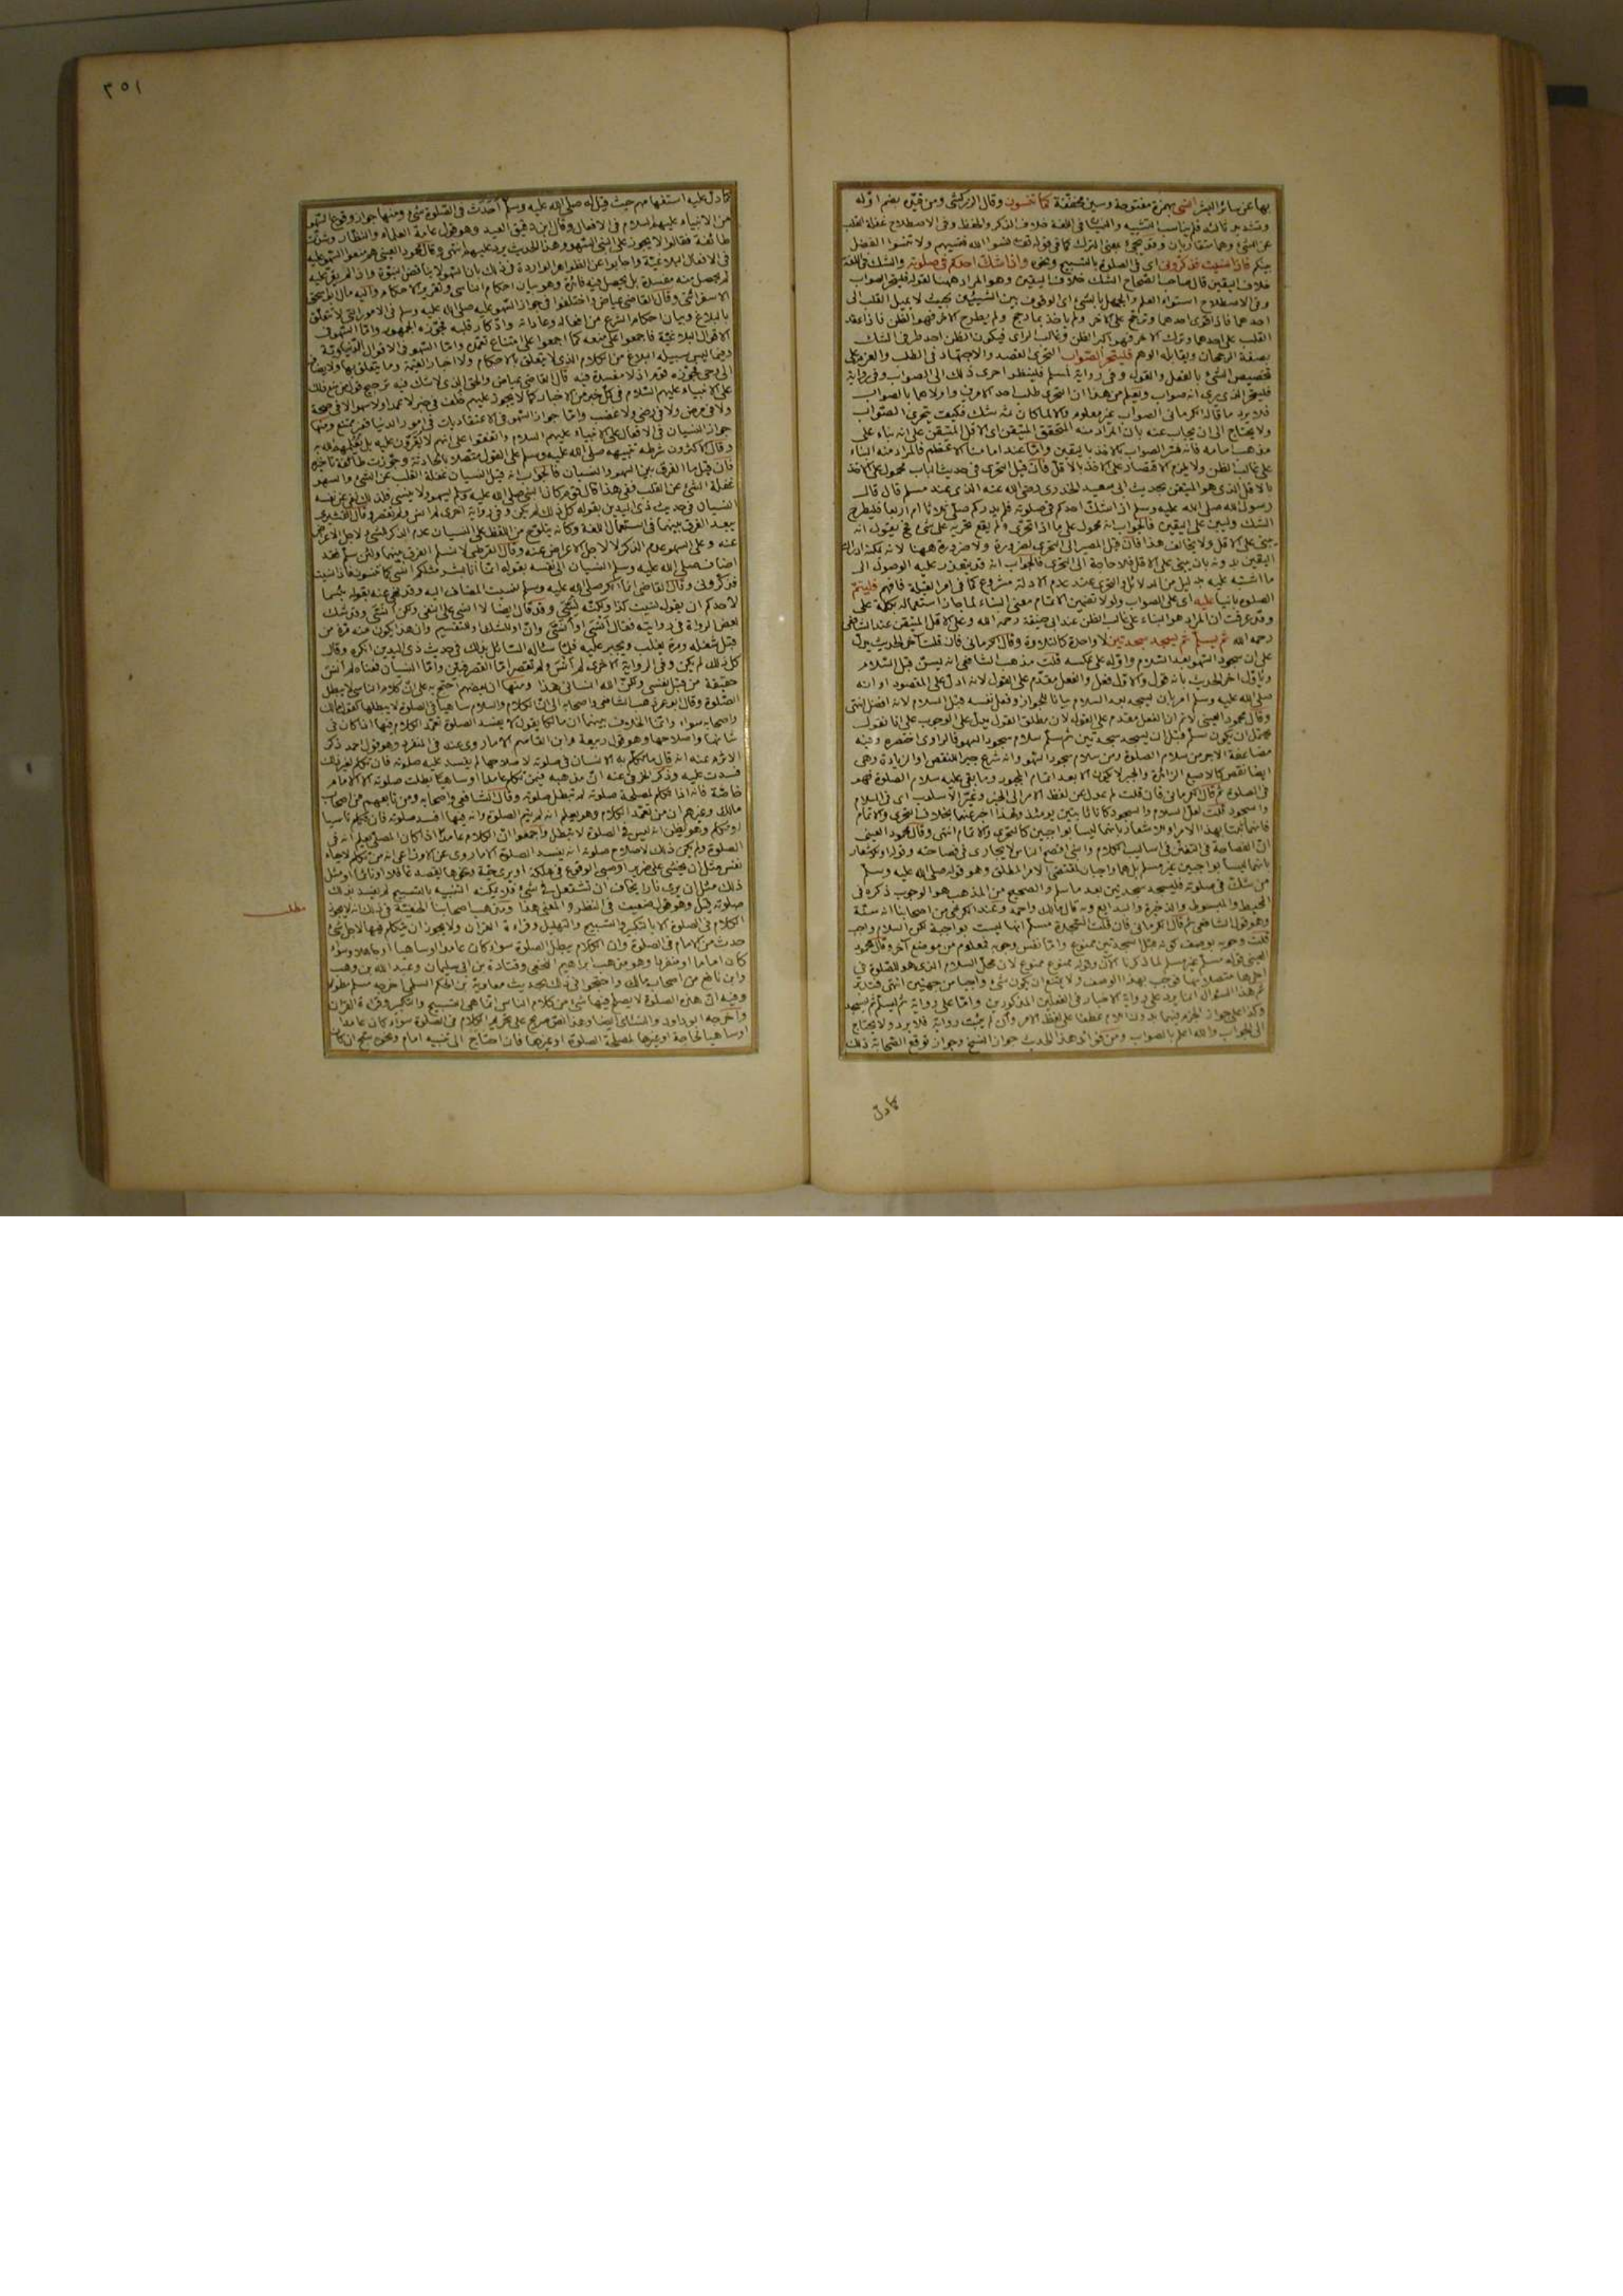 بها عن سائر البشر انسى بهمزة مفتوحة وسين مخففة كما تنسون وقال الزركشى ومن قيّد بضم اوّله
وتشديد ثالثه فلم يناسب التشبيه والنسيان فى اللغة خلاف الذكر والحفظ وفى الاصطلاح غفلة القلب
عن الشئ بمعنى الترك كما فى قوله تعالى نسوا الله فنسيهم ولا تنسوا الفضل
بينكم فاذا نسيت فذكرونى اى فى الصلوة بالتسبيح ونحوه واذا شكّ احدكم فى صلوته والشك فى اللغة
خلاف اليقين قال صاحب الصحاح الشك خلاف اليقين وهو المراد ههنا لقوله فليتحر الصواب
وفى الاصطلاح استواء العلم والجهل بالشئ اى الوقوف بين الشيئين بحيث لا يميل القلب الى
احدهما فاذا قوى احدهما وترجح على الآخر ولم ياخذ بما رجح ولم يطرح الآخر فهو الظن فاذا عقد
القلب على احدهما وترك الآخر فهو اكبر الظن وغالب الراى فيكون الظن احد طرفى الشك
بصفة الرجحان ويقابله الوهم فليتحر الصواب التحرى القصد والاجتهاد فى الطلب والعزم على
تخصيص الشئ بالفعل والقول وفى رواية لمسلم فلينظر احرى ذلك الى الصواب وفى رواية
فليتحر الذى يرى انه صواب ويعلم من هذا ان التحرى طلب احد الامرين واولاهما بالصواب
فلا يرد ما قاله الكرمانى الصواب غير معلوم والا لما كان ثمه شك فكيف يتحرى الصواب
ولا يحتاج الى ان يجاب عنه بان المراد منه المتحقق المتيقن اى الاقل المتيقن على انه بناء على
مذهب امامه فانه فسّر الصواب بالاخذ باليقين وامّا عند امامنا الاعظم فالمراد منه البناء
على غالب الظن ولا يلزم الاقتصار على الاخذ بالاقل فان قيل التحرى فى حديث الباب محمول على الاخذ
بالاقل الذى هو المتيقن بحديث ابى سعيد الخدرى رضى الله عنه الذى عند مسلم قال قال
رسول الله صلى الله عليه وسلم اذا شكّ احدكم فى صلوته فلم يدر كم صلى ثلاثا ام اربعا فليطرح
الشك وليبن على اليقين فالجواب انه محمول على ما اذا تحرى ولم يقع تحريه على شئ فح يقول انه
يبنى على الاقل ولا يخالف هذا فان قيل المصير الى التحرى لضرورة ولا ضرورة ههنا لانه يمكنه ادراك
اليقين بدونه بان يبنى على الاقل فلا حاجة الى التحرى فالجواب انه قد يتعذر عليه الوصول الى
ما اشتبه عليه بدليل من الدلائل والتحرى عند عدم الادلة مشروع كما فى امر القبلة فافهم فليتمّ
الصلوة بانيا عليه اى على الصواب ولولا تضمين الاتمام معنى البناء لما جاز استعماله بكلمة على
وقد عرفت ان المراد هو البناء على غالب الظن عند ابى حنيفة رحمه الله وعلى الاقل المتيقن عند الشافعى
رحمه الله ثم يسلّم ثم يسجد سجدتين لا واحدة كالتلاوة وقال الكرمانى فان قلت آخر الحديث يدل
على ان سجود السهو بعد السلام واوله على عكسه قلت مذهب الشافعى انه يسن قبل السلام
وتأوّل آخر الحديث بانه قول والاول فعل والفعل مقدم على القول لانه ادل على المقصود او انه
صلى الله عليه وسلم امر بان يسجد بعد السلام بيانا للجواز وفعل نفسه قبل السلام لانه افضل انتهى
وقال محمود العينى لا نم ان الفعل مقدم على القول لان مطلق القول يدل على الوجوب على انا نقول
يحتمل ان يكون سلّم قبل ان يسجد سجدتين ثم سلّم سلام سجود السهو فالراوى اختصره وفيه
مضاعفة الاجر من سلام الصلوة ومن سلام سجود السهو وانه شرع جبر النقص او الزيادة وهى
ايضا نقص كالاصبع الزائدة والجبر لا يكون الا بعد اتمام المجبور وما بقى عليه سلام الصلوة فهو
فى الصلوة ثم قال الكرمانى فان قلت لم عدل عن لفظ الامر الى الخبر وغيّر الاسلوب اى فى السلام
والسجود قلت لعل السلام والسجود كانا ثابتين يومئذ ولهذا اخبر عنهما بخلاف التحرى والاتمام
فانهما ثبتا بهذا الامر او للاشعار بانهما ليسا بواجبين كالتحرى والاتمام انتهى وقال محمود العينى
انّ الفصاحة فى التفنن فى اساليب الكلام والنبى افصح الناس لا يجارى فى فصاحته وقوله او للاشعار
بانهما ليسا بواجبين غير مسلم بل هما واجبان لمقتضى الامر المطلق وهو قوله صلى الله عليه وسلم
من شكّ فى صلوته فليسجد سجدتين بعد ما سلم والصحيح من المذهب هو الوجوب ذكره فى
المحيط والمبسوط والذخيرة والبدايع وبه قال مالك واحمد وعند الكرخى من اصحابنا انه سنة
وهو قول الشافعى ثم قال الكرمانى فان قلت السجدة مسلّم انها ليست بواجبة لكن السلام واجب
قلت وجوبه بوصف كونه قبل السجدتين ممنوع وامّا نفس وجوبه فمعلوم من موضع آخر وقال محمود
العينى قوله مسلّم غير مسلم لما ذكرنا الآن وقوله ممنوع ممنوع لان محل السلام الذى هو للصلوة فى
ثم هذا السؤال انما يرد على رواية الاخبار فى الفعلين المذكورين وامّا على رواية ثم ليسلّم ثم ليسجد
الى الجواب والله اعلم بالصواب ومن فوائد هذا الحديث جواز النسخ وجواز توقع الصحابة ذلك
كما دلّ
٣٥١
كما دل عليه استفهامهم حيث قيل له صلى الله عليه وسلم أحدث فى الصلوة شئ ومنها جواز وقوع السهو
من الانبياء عليهم السلام فى الافعال وقال ابن دقيق العيد وهو قول عامة العلماء والنظار وشذّت
طائفة فقالوا لا يجوز على النبى السهو وهذا الحديث يرد عليهم انتهى وقال محمود العينى هم منعوا السهو عليه
فى الافعال البلاغيّة واجابوا عن الظواهر الواردة فى ذلك بان السهو لا يناقض النبوة واذا لم يقرّ عليه
لم يحصل منه مفسدة بل يحصل فيه فائدة وهو بيان احكام الناسى وتقرير الاحكام واليه مال ابو اسحق
الاسفرائنى وقال القاضى عياض واختلفوا فى جواز السهو عليه صلى الله عليه وسلم فى الامور التى لا تتعلق
بالبلاغ وبيان احكام الشرع من افعاله وعاداته واذكار قلبه فجوزه الجمهور وامّا السهو فى
الاقوال البلاغيّة فاجمعوا على منعه كما اجمعوا على امتناع تعمّده وامّا السهو فى الاقوال الدنياويّة
وفيما ليس سبيله البلاغ من الكلام الذى لا يتعلق بالاحكام ولا اخبار القيمة وما يتعلق بها ولا يضاف
الى وحى فجوزه قوم اذ لا مفسدة فيه قال القاضى عياض والحق الذى لا شك فيه ترجيح قول من منع ذلك
على الانبياء عليهم السلام فى كل خبر من الاخبار كما لا يجوز عليهم خلف فى خبر لا عمدا ولا سهوا لا فى صحة
ولا فى مرض ولا فى رضى ولا غضب وامّا جواز السهو فى الاعتقادات فى امور الدنيا فغير ممتنع ومنها
جواز النسيان فى الافعال على الانبياء عليهم السلام واتفقوا على انهم لا يقرّون عليه بل يعلمهم الله به
وقال الاكثرون شرطه تنبيهه صلى الله عليه وسلم على الفور متصلا بالحادثة وجوزت طائفة تاخيره
فان قيل ما الفرق بين السهو والنسيان فالجواب انه قيل النسيان غفلة القلب عن الشئ والسهو
غفلة الشئ عن القلب ففى هذا قال قوم كان النبى صلى الله عليه وسلم يسهو ولا ينسى فلذلك نفى عن نفسه
النسيان فى حديث ذى اليدين بقوله كل ذلك لم يكن وفى رواية اخرى لم انس ولم تقصر وقال القشيرى
يبعد الفرق بينهما فى استعمال اللغة وكانه يتلوح من اللفظ على النسيان عدم الذكر لشئ لاجل الاعراض
عنه وعلى السهو عدم الذكر لا لاجل الاعراض عنه وقال القرطبى لا نسلم الفرق بينهما ولئن سلم فقد
اضاف صلى الله عليه وسلم النسيان الى نفسه بقوله انما انا بشر مثلكم انسى كما تنسون فاذا نسيت
فذكرونى وقال القاضى انما انكر صلى الله عليه وسلم نسيت المضاف اليه وقد نهى عنه بقوله بئسما
لاحدكم ان يقول نسيت كذا ولكنّه نُسّى وقد قال ايضا لا انسى على النفى ولكن اُنَسّى وقد شك
بعض الرواة فى روايته فقال اَنسى او اُنَسّى وانّ او للشك او للتقسيم وان هذا يكون منه مرة من
قبل شغله ومرة يغلب ويجبر عليه فلما سأله السائل بذلك فى حديث ذى اليدين انكره وقال
كل ذلك لم يكن وفى الرواية الاخرى لم أنس ولم تقصر امّا القصر فبيّن وامّا النسيان فمعناه لم أنس
حقيقة من قبل نفسى ولكنّ الله انسانى هذا ومنها ان بعضهم احتج به على ان كلام الناسى لا يبطل
الصلوة وقال ابو عمر ذهب الشافعى واصحابه الى انّ الكلام والسلام ساهيا فى الصلوة لا يبطلها كقول مالك
واصحابه سواء وانّما الخلاف بينهما ان مالكا يقول لا يفسد الصلوة تعمّد الكلام فيها اذا كان فى
شانها واصلاحها وهو قول ربيعة وابن القاسم الا ما روى عنه فى المنفرد وهو قول احمد ذكر
الاثرم عنه انه قال ما تكلّم به الانسان فى صلوته لاصلاحها لم يفسد عليه صلوته فان تكلم لغير ذلك
فسدت عليه وذكر الخرقى عنه انّ مذهبه فيمن تكلم عامدا او ساهيا بطلت صلوته الا الامام
خاصّة فانه اذا تكلم لمصلحة صلوته لم تبطل صلوته وقال الشافعى واصحابه ومن تابعهم من اصحاب
مالك وغيرهم ان من تعمّد الكلام وهو يعلم انه لم يتم الصلوة وانه فيها افسد صلوته فان تكلم ناسيا
او تكلم وهو يظن انه ليس فى الصلوة لا تبطل واجمعوا انّ الكلام عامدا اذا كان المصلى يعلم انه فى
الصلوة ولم يكن ذلك لاصلاح صلوته انه يفسد الصلوة الا ما روى عن الاوزاعى انه من تكلم لاحياء
نفس
ذلك
صلوته قيل وهو قول ضعيف فى النظر والمعنى هذا وذهب اصحابنا الحنفيّة فى ذلك انه لا يجوز
الكلام فى الصلوة الا بالتكبير والتسبيح والتهليل وقراءة القرآن ولا يجوز ان يتكلم فيها لاجل شئ
حدث من الامام فى الصلوة وان الكلام يبطل الصلوة سواء كان عامدا او ساهيا او جاهلا وسواء
كان اماما او منفردا وهو مذهب ابراهيم النخعى وقتادة وحماد بن ابى سليمان وعبد الله بن وهب
وابن نافع من اصحاب مالك واحتجوا فى ذلك بحديث معاوية بن الحكم السلمى اخرجه مسلم مطولا
وفيه انّ هذه الصلوة لا يصلح فيها شئ من كلام الناس انما هى التسبيح والتكبير وقراءة القرآن
واخرجه ابو داود والنسائى ايضا وهذا نصّ صريح على تحريم الكلام فى الصلوة سواء كان عامدا
او ساهيا لحاجة او غيرها لمصلحة الصلوة او غيرها فان احتاج الى تنبيه امام ونحوه سبّح ان كان
مطلب